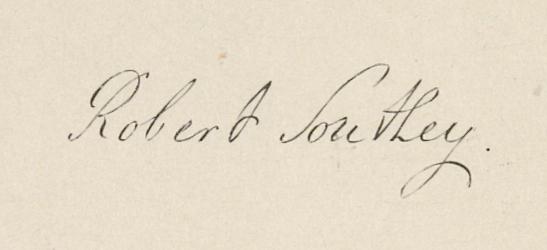 Robert Southey.